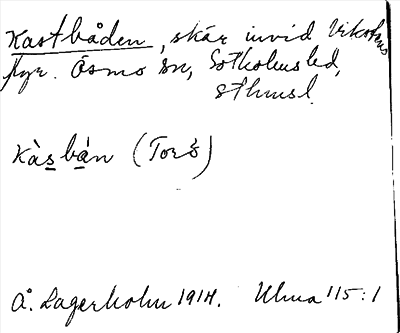 Kastbåden, skär invid Vikholms
fyr. Ösmo sn, Sotholms hd,
sthmsl.
Kàsbán (Torö)
Å. Lagerholm 1914. Ulma 115:1